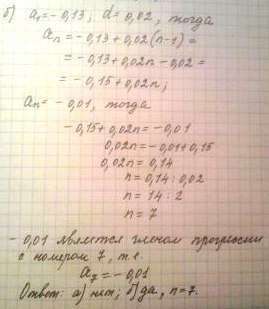 б) a₁ = -0,13; d = 0,02, тогда
aₙ = -0,13 + 0,02(n-1) =
= -0,13 + 0,02n - 0,02 =
= -0,15 + 0,02n;
aₙ = -0,01, тогда
-0,15 + 0,02n = -0,01
0,02n = -0,01 + 0,15
0,02n = 0,14
n = 0,14 : 0,02
n = 14 : 2
n = 7
-0,01 является членом прогрессии
с номером 7, т.е.
a₇ = -0,01
Ответ: а) нет; б) да, n = 7.